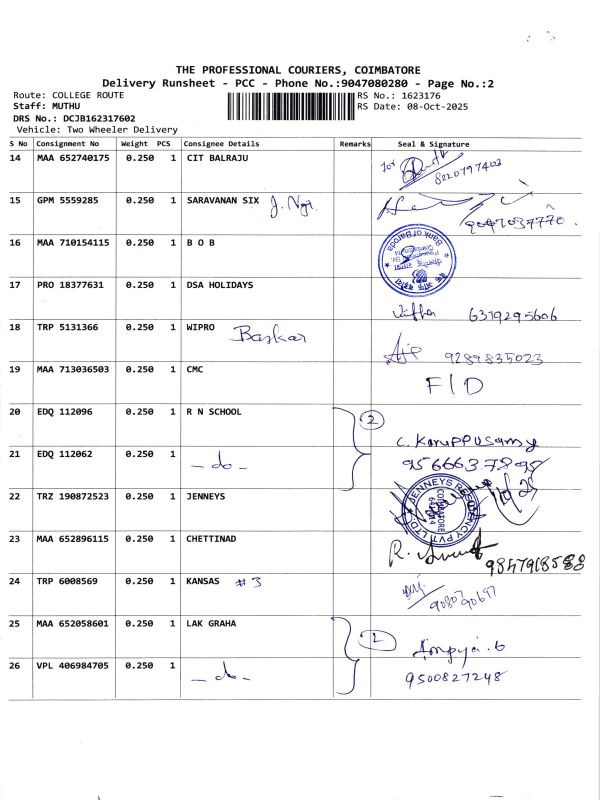 THE PROFESSIONAL COURIERS, COIMBATORE
Delivery Runsheet - PCC - Phone No.:9047080280 - Page No.:2
Route: COLLEGE ROUTE
RS No.: 1623176
Staff: MUTHU
RS Date: 08-Oct-2025
DRS No.: DCJB162317602
Vehicle: Two Wheeler Delivery
S No Consignment No Weight PCS Consignee Details Remarks Seal & Signature
14 MAA 652740175 0.250 1 CIT BALRAJU for
8220797403
15 GPM 5559285 0.250 1 SARAVANAN SIX
9047037770.
16 MAA 710154115 0.250 1 B O B Bank of Baroda
17 PRO 18377631 0.250 1 DSA HOLIDAYS
6379295606
18 TRP 5131366 0.250 1 WIPRO Baskar
9289835023
19 MAA 713036503 0.250 1 CMC F/D
20 EDQ 112096 0.250 1 R N SCHOOL 2
C. Karuppusamy
21 EDQ 112062 0.250 1 - do - 9566637898
22 TRZ 190872523 0.250 1 JENNEYS JENNEYS RESIDENCY PVT LTD COIMBATORE
23 MAA 652896115 0.250 1 CHETTINAD R.
9847918588
24 TRP 6008569 0.250 1 KANSAS #3
9080790697
25 MAA 652058601 0.250 1 LAK GRAHA
26 VPL 406984705 0.250 1 - do - 9500827248